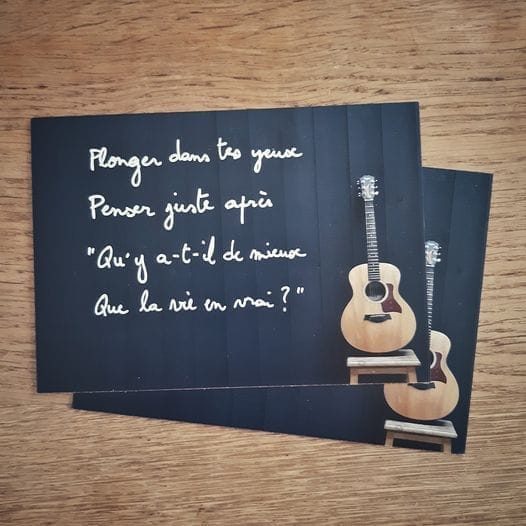 Plonger dans tes yeux
Penser juste après
"Qu'y a-t-il de mieux
Que la vie en vrai ?"